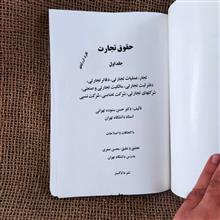 حقوق تجارت
جلد اول
تجار، عملیات تجارتی، دفاتر تجارتی،
دفتر ثبت تجارتی، مالکیت تجارتی و صنعتی،
شرکتهای تجارتی، شرکت تضامنی، شرکت نسبی
تألیف: دکتر حسن ستوده تهرانی
استاد دانشگاه تهران
با الحاقات و اصلاحات
تحقیق و تطبیق: محسن صفری
مدرس دانشگاه تهران
نشر دادگستر